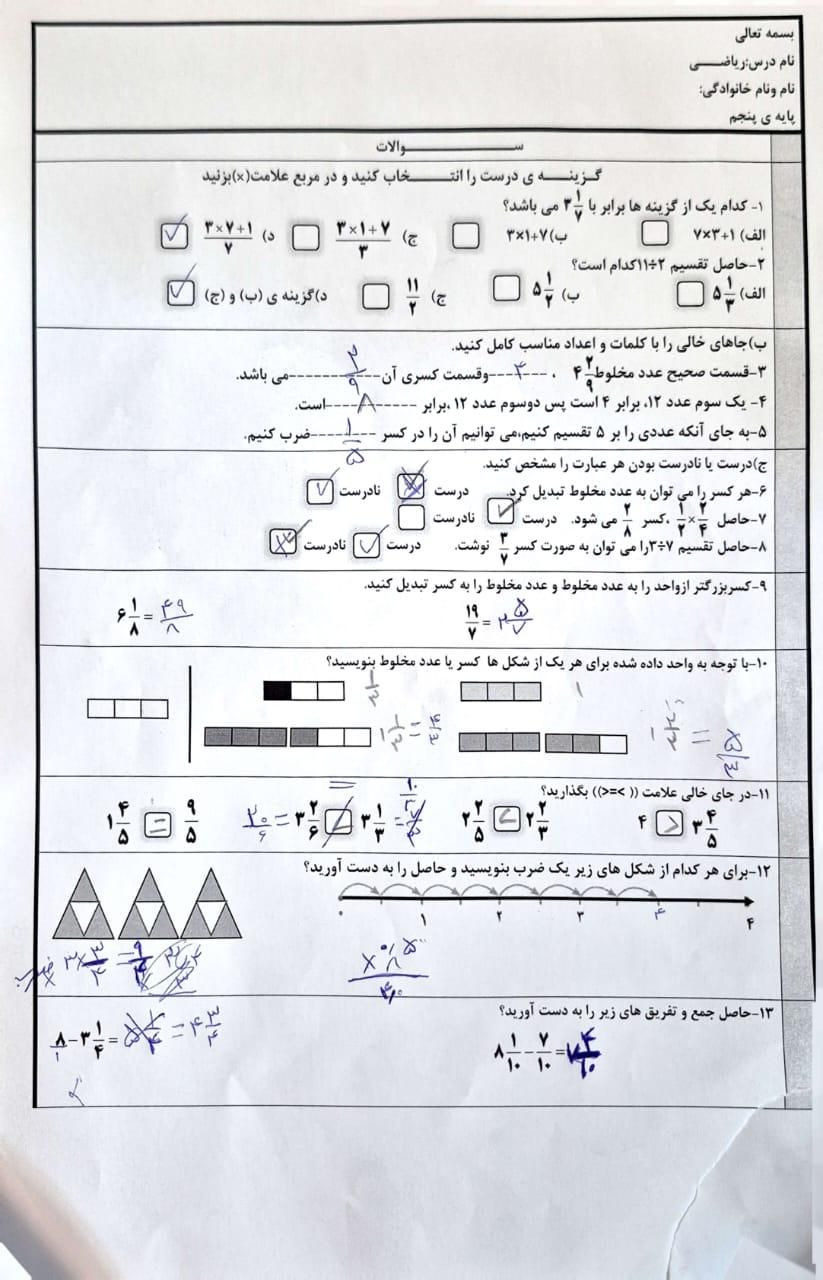 بسمه تعالی
نام درس:ریاضـــــی
نام ونام خانوادگی:
پایه ی پنجم
ســــــــــــــــوالات
گزینـــــه ی درست را انتـــــــخاب کنید و در مربع علامت(x)بزنید
۱- کدام یک از گزینه ها برابر با ۳ ۱/۷ می باشد؟
الف) ۷×۳+۱ ب)۳×۱+۷ ج) ۳×۱+۷/۳ د) ۳×۷+۱/۷ ✓
۲-حاصل تقسیم ۲÷۱۱کدام است؟
الف) ۵ ۱/۳ ب) ۵ ۱/۲ ج) ۱۱/۲ د)گزینه ی (ب) و (ج) ✓
ب)جاهای خالی را با کلمات و اعداد مناسب کامل کنید.
۳-قسمت صحیح عدد مخلوط ۴ ۲/۹ ، ---۴---- وقسمت کسری آن ------۲/۹------ می باشد.
۴- یک سوم عدد ۱۲، برابر ۴ است پس دوسوم عدد ۱۲ ،برابر ------۸---- است.
۵-به جای آنکه عددی را بر ۵ تقسیم کنیم،می توانیم آن را در کسر ----۱/۵---- ضرب کنیم.
ج)درست یا نادرست بودن هر عبارت را مشخص کنید.
۶-هر کسر را می توان به عدد مخلوط تبدیل کرد. درست نادرست ✓
۷-حاصل ۲/۴ × ۱/۲ ،کسر ۲/۸ می شود. درست ✓ نادرست
۸-حاصل تقسیم ۷÷۳را می توان به صورت کسر ۳/۷ نوشت. درست ✓ نادرست
۹-کسربزرگتر ازواحد را به عدد مخلوط و عدد مخلوط را به کسر تبدیل کنید.
۱۹/۷ = ۲ ۵/۷ ۶ ۱/۸ = ۴۹/۸
۱۰-با توجه به واحد داده شده برای هر یک از شکل ها کسر یا عدد مخلوط بنویسید؟
۱ ۱/۳
۱ ۲/۳ = ۵/۳ ۱ ۱/۳ = ۴/۳
۱۱-در جای خالی علامت ((<=>)) بگذارید؟
۳ ۴/۵ < ۴ ۲ ۲/۳ > ۲ ۲/۵ ۱۰/۳ = ۳ ۱/۳ = ۳ ۲/۶ = ۲۰/۶ ۹/۵ = ۱ ۴/۵
۱۲-برای هر کدام از شکل های زیر یک ضرب بنویسید و حاصل را به دست آورید؟
۰ ۱ ۲ ۳ ۴ ۴
۳ × ۳/۴ = ۹/۴
۱۳-حاصل جمع و تفریق های زیر را به دست آورید؟
۸ ۱/۱۰ - ۷/۱۰ = ۷ ۴/۱۰ ۸ - ۳ ۱/۴ = ۴ ۳/۴